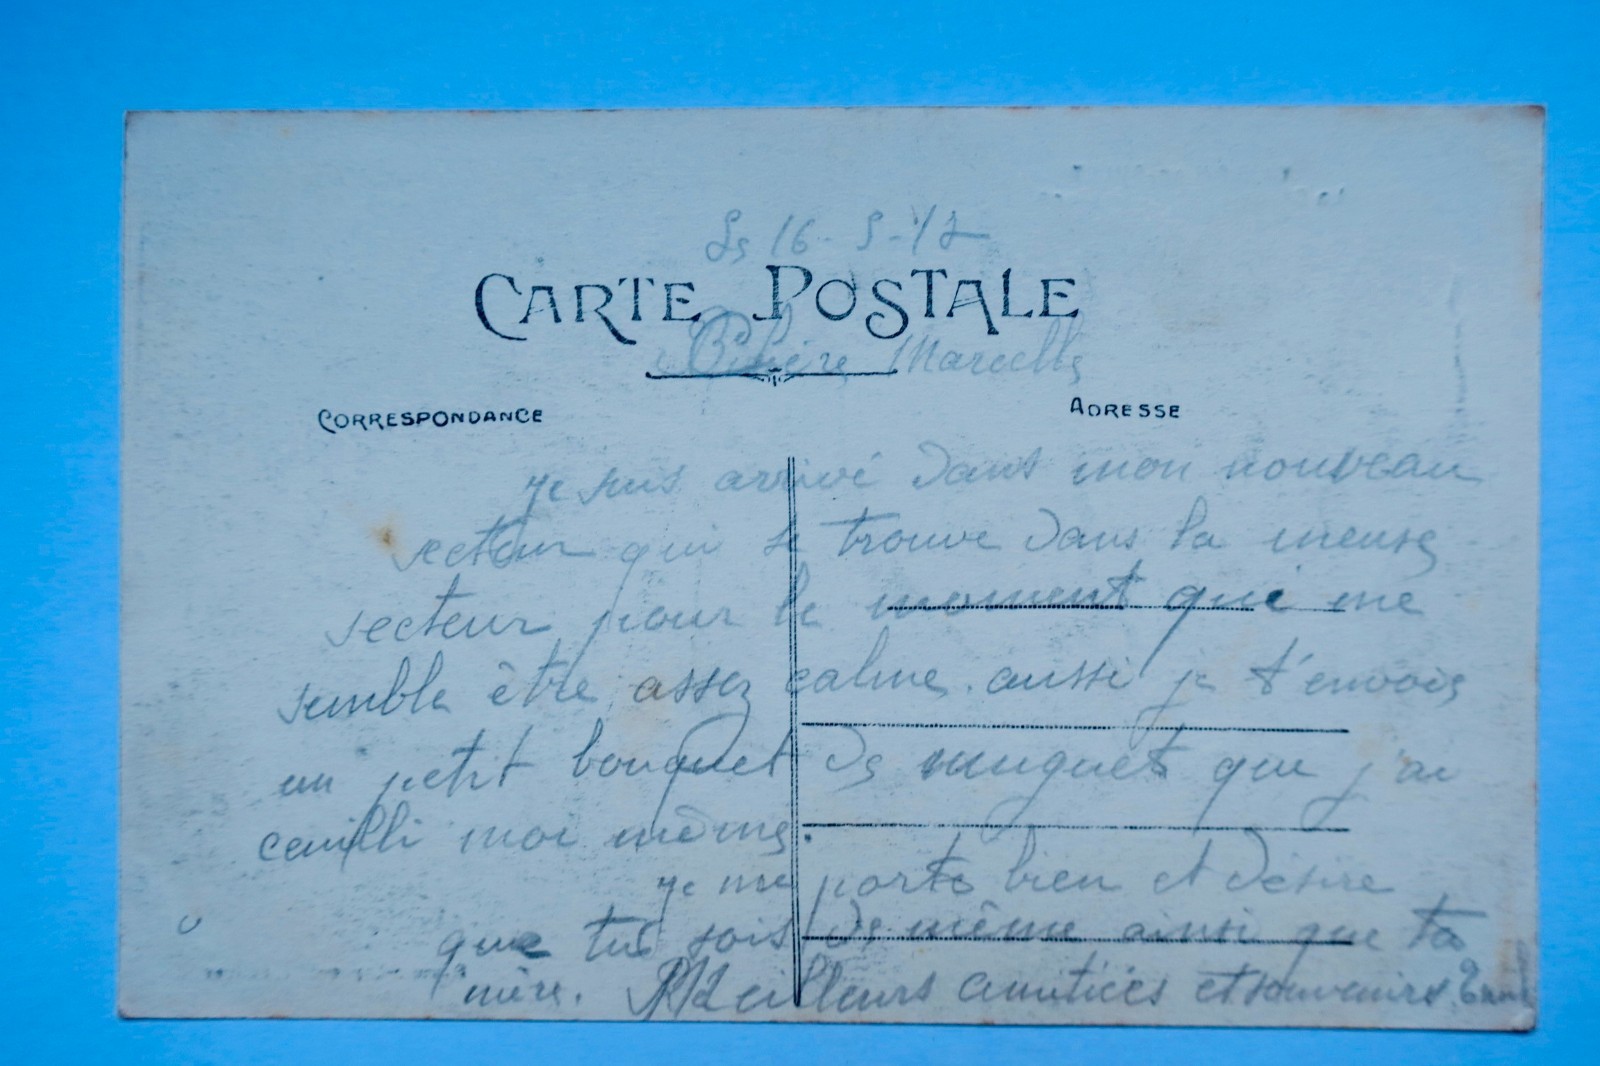 Le 16-5-17
CARTE POSTALE
Chère Marcelle
CORRESPONDANCE
ADRESSE
Je suis arrivé dans mon nouveau
secteur qui se trouve dans la meuse
secteur pour le moment qui me
semble être assez calme. aussi je t'envois
un petit bouquet de muguets que j'ai
ceuilli moi même.
Je me porte bien et désire
que tu sois de même ainsi que ta
mère. Meilleurs amitiées et souvenirs